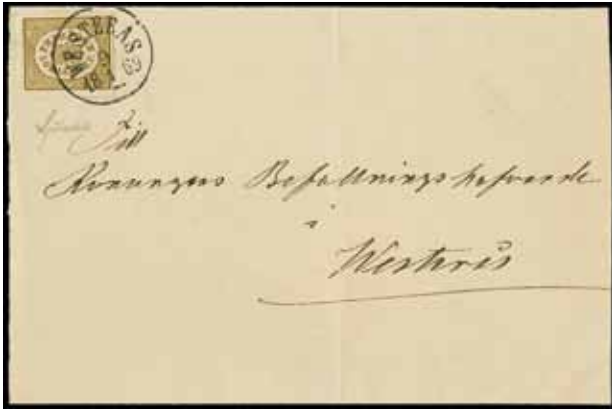 WESTERÅS
9
Till
Konungens Befallningshafvande
i
Westerås